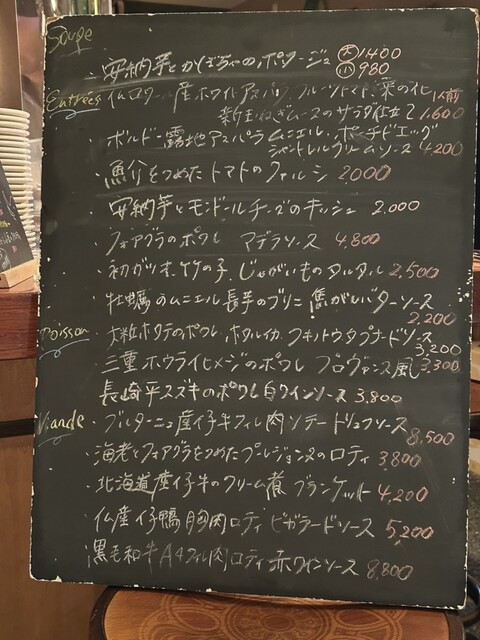 Soupe
・安納芋とかぼちゃのポタージュ 大 1400
小 980
Entrées
・ロワール産ホワイトアスパラ、フルーツトマト、菜の花 1人前
新玉ねぎムースのサラダ仕立て 1,600
・ボルドー露地アスパラムニエル、ポーチドエッグ
シャントレルクリームソース 4,200
・魚介をつめたトマトのファルシ 2,000
安納芋とモンドールチーズのキッシュ 2,000
・フォアグラのポワレ マデラソース 4,800
・初がつを、竹の子、じゃがいものタルタル 2,500
・牡蠣のムニエル 長芋のブリニ 焦がしバターソース
2,200
Poisson
・大粒ホタテのポワレ、ホタルイカ、フキノトウタプナードソース
3,200
三重ホウライヒメジのポワレ プロヴァンス風 3,300
長崎平スズキのポワレ 白ワインソース 3,800
Viande
・ブルターニュ産仔牛フィレ肉ソテー トリュフソース
8,500
・海老とフォアグラをつめたプレジョンヌのロティ 3,800
・北海道産仔牛のクリーム煮 ブランケット 4,200
・仏産仔鴨胸肉ロティ ビガラードソース 5,200
黒毛和牛A4フィレ肉ロティ 赤ワインソース 8,800